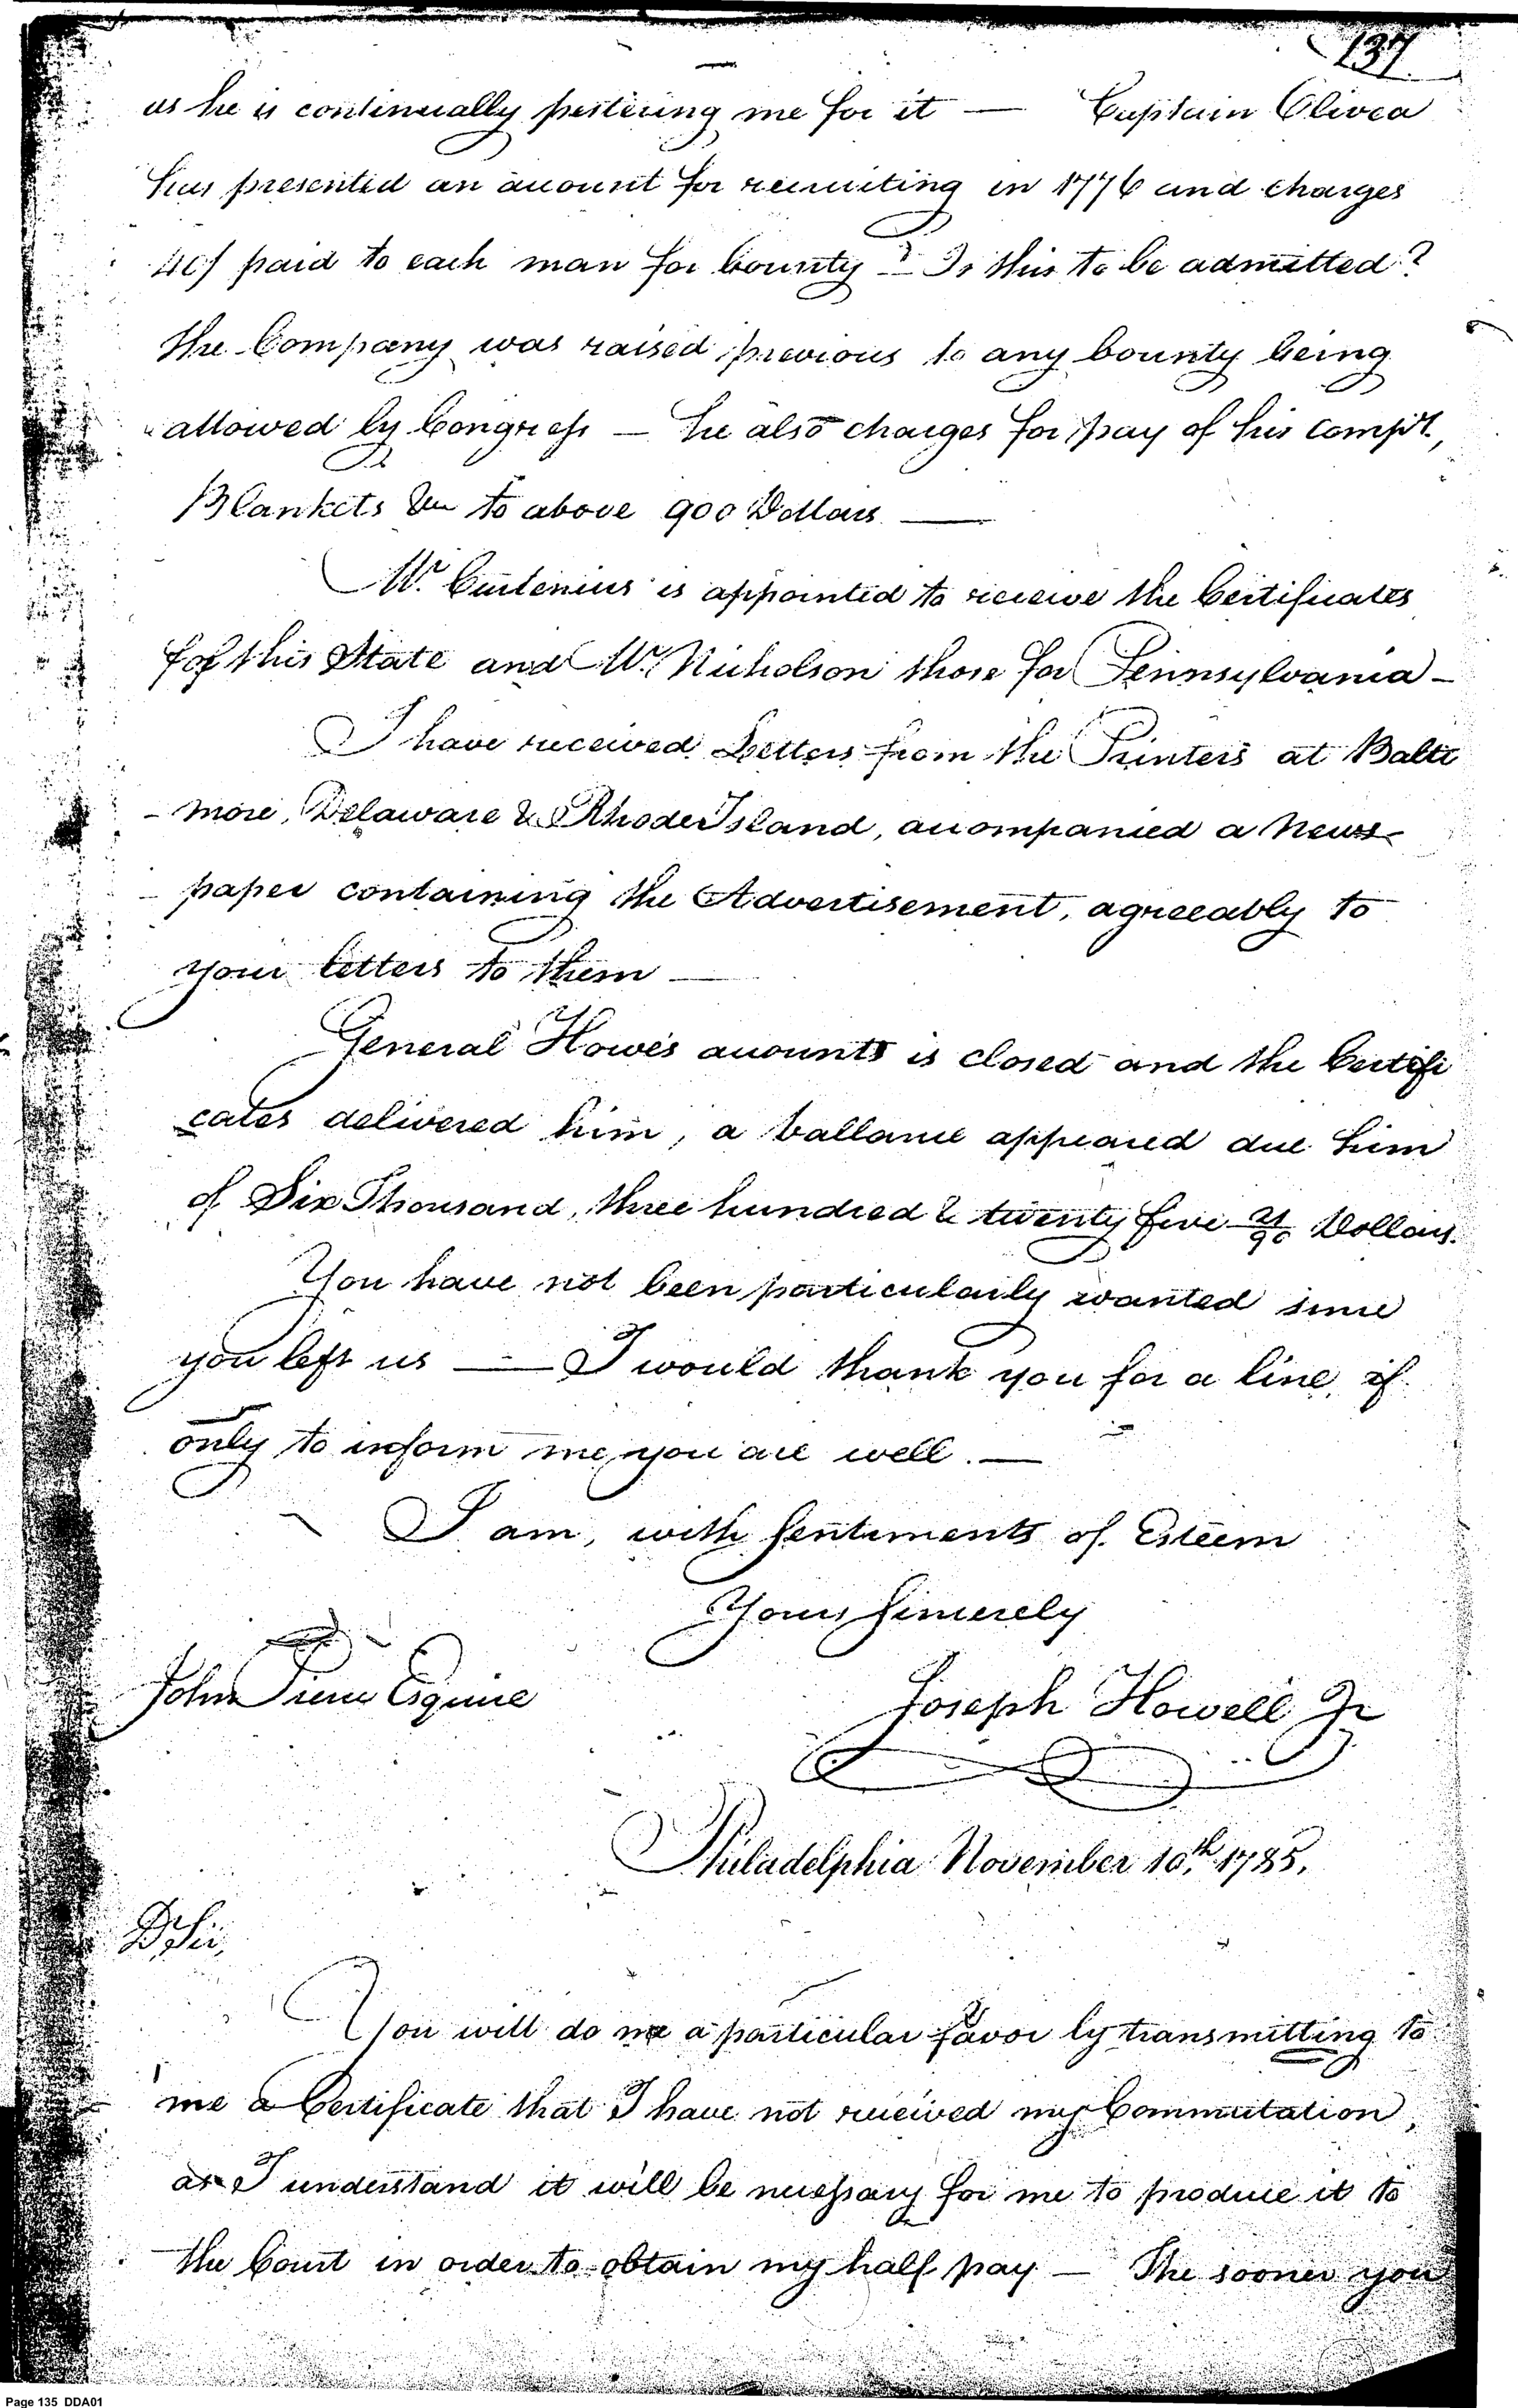 137
as he is continually pestering me for it — Captain Olivea
has presented an account for recruiting in 1776 and charges
40/ paid to each man for bounty — Is this to be admitted?
the Company was raised previous to any bounty being
allowed by Congress — he also charges for pay of his compy.,
Blankets &c to above 900 Dollars —
Mr. Curtenius is appointed to receive the Certificates
for this State and Mr. Nicholson those for Pennsylvania -
I have received Letters from the Printers at Balti
- more, Delaware & Rhode Island, accompanied a News-
- paper containing the Advertisement, agreeably to
your letters to them —
General Howe's accounts is closed and the Certifi
cates delivered him, a ballance appeared due him
of Six Thousand, three hundred & twenty five 21/90 Dollars.
You have not been particularly wanted since
you left us — I would thank you for a line, if
only to inform me, you are well. —
I am, with Sentiments of Esteem
Yours Sincerely
John Pierce Esquire
Joseph Howell Jr
Philadelphia November 10th. 1785.
Dr Sir,
You will do me a particular favor by transmitting to
me a Certificate that I have not received my Commutation,
as I understand it will be necessary for me to produce it to
the Court in order to obtain my half pay — The sooner you
Page 135 DDA01